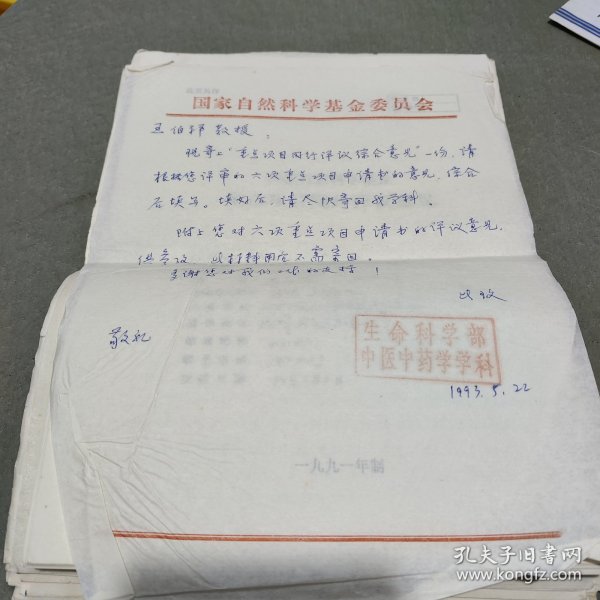 国家自然科学基金委员会
伯祥教授:
现寄上"重点项目同行评议综合意见"一份,请
根据您评审的六项重点项目申请书的意见,综合
后填写。填好后,请尽快寄回我学科。
附上您对六项重点项目申请书的评议意见,
供参考。此材料用完不需寄回。
多谢您对我们工作的支持!
此致
敬礼
生命科学部
中医中药学学科
1993.5.22
一九九一年制
孔夫子旧书网
www.kongfz.com